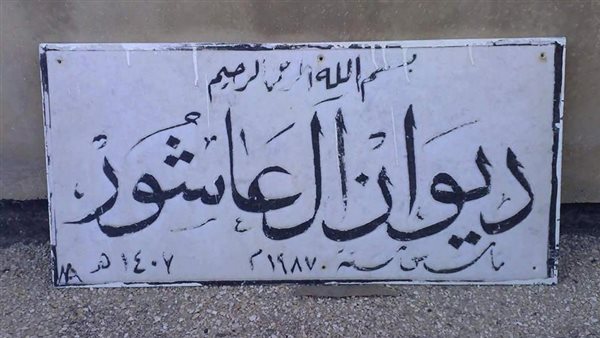 بسم الله الرحمن الرحيم
ديوان آل عاشور
تأسس سنة ١٩٨٧م ١٤٠٧هـ